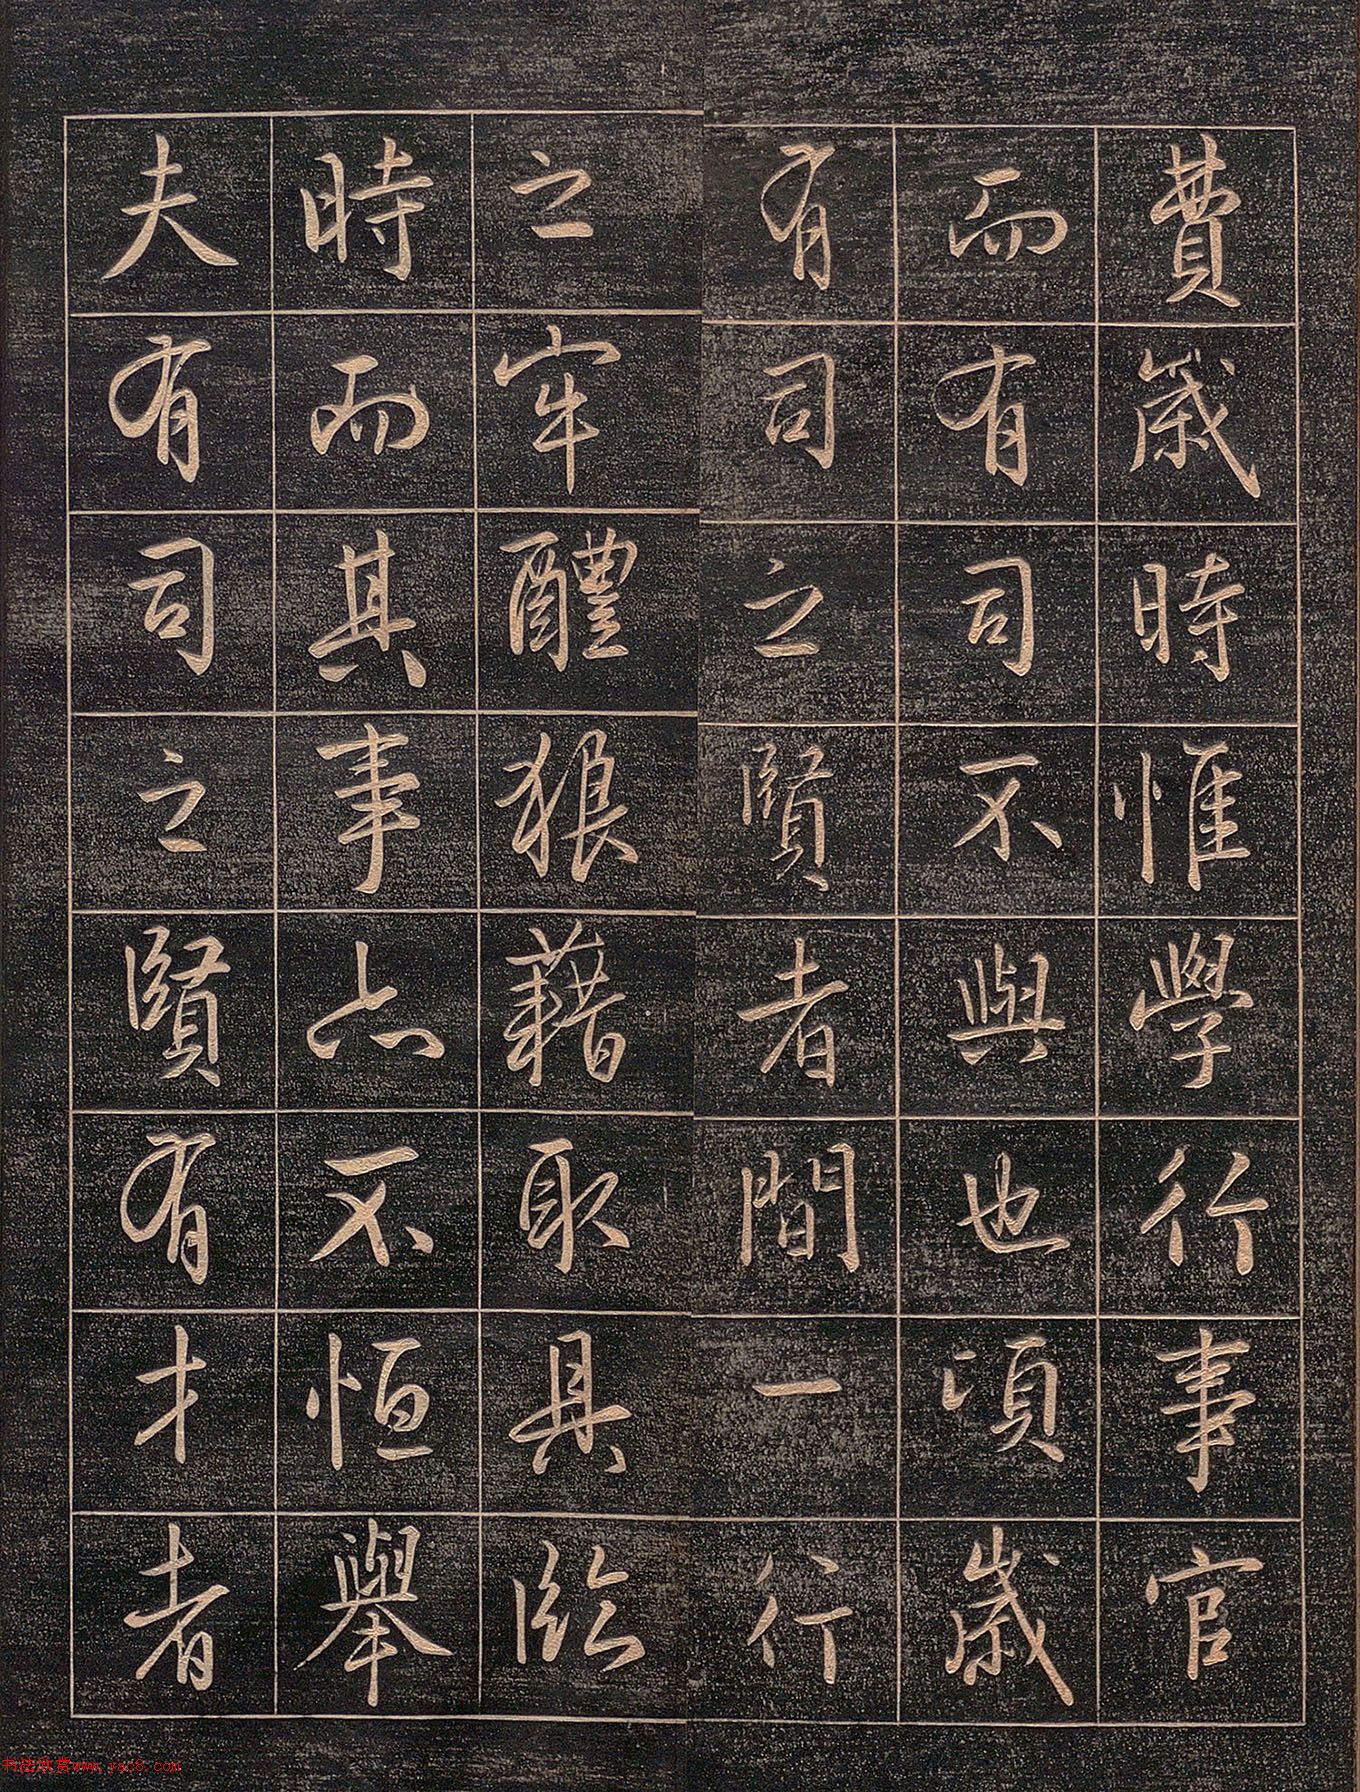 費歲時惟學行事官
而有司不與也頃歲
有司之賢者間一行
之牢醴狼藉取具臨
時而其事亦不恒舉
夫有司之賢有才者
书法欣赏www.yac8.com